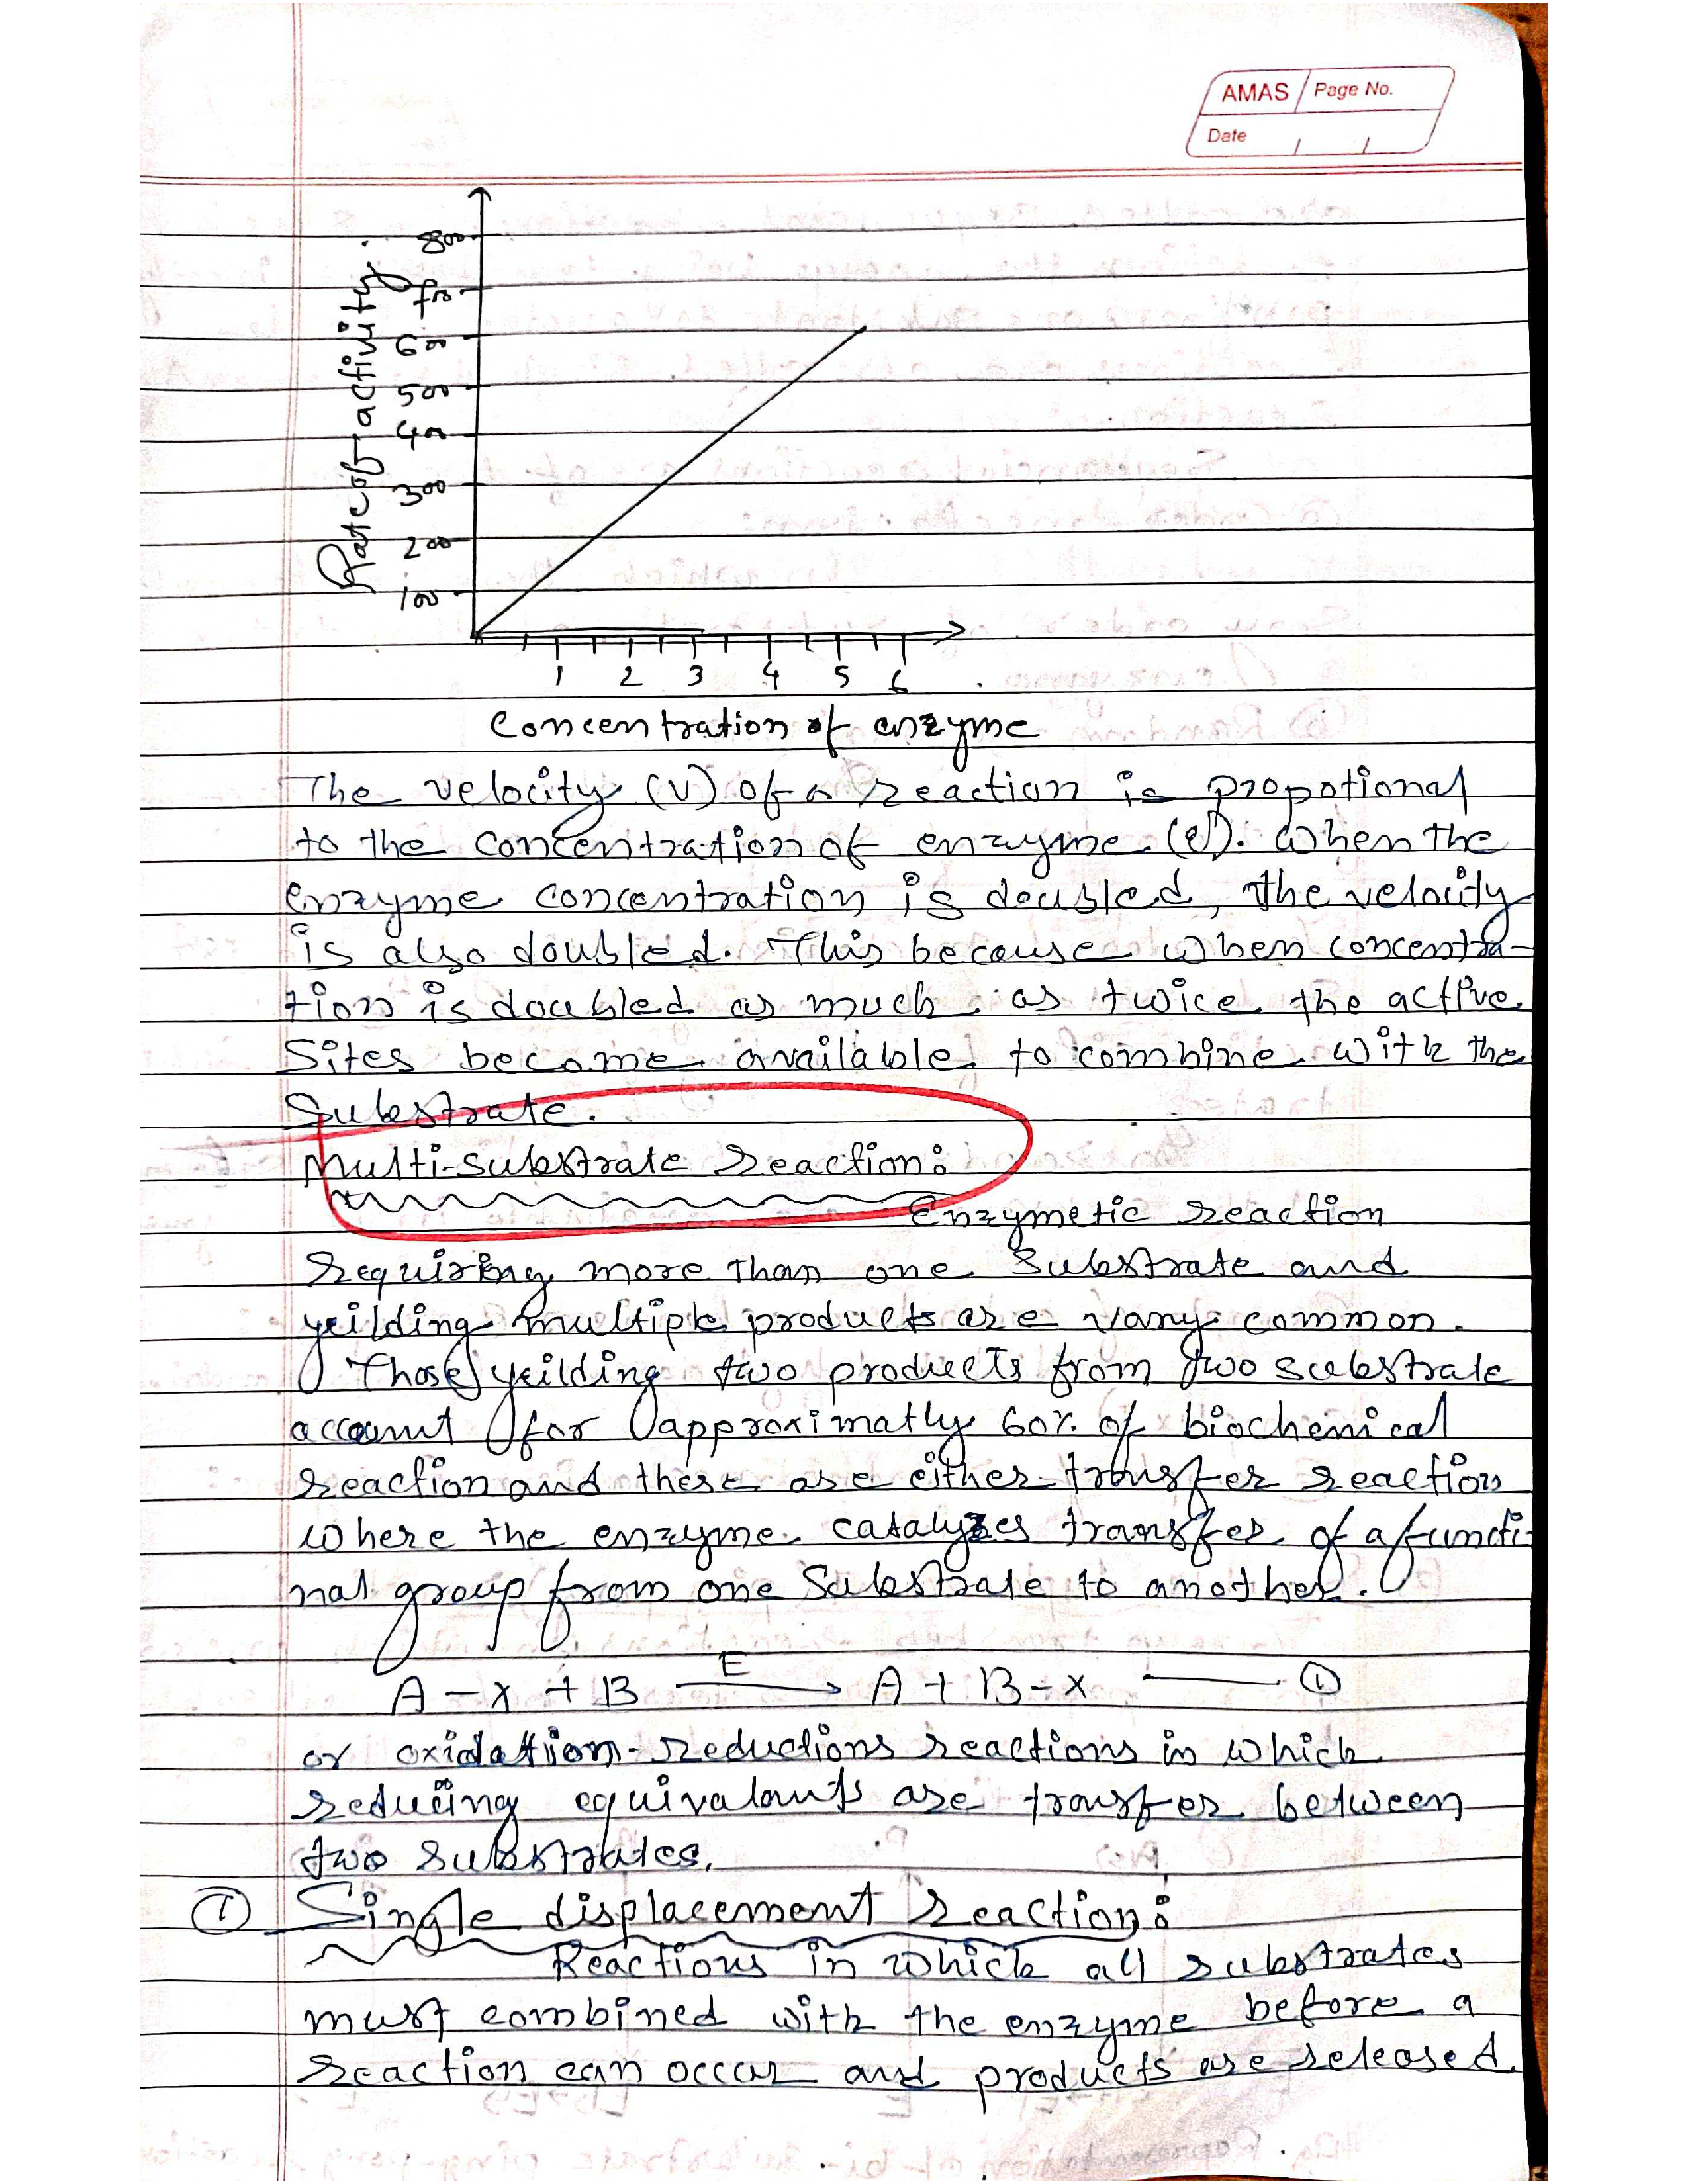 AMAS Page No.
Date
800
700
600
500
400
300
200
100
Rate of activity
1 2 3 4 5 6
Concentration of enzyme
The velocity (v) of a reaction is propotional
to the concentration of enzyme (e). When the
enzyme concentration is doubled, the velocity
is also doubled. This because when concentra-
tion is doubled as much as twice the active
Sites become available to combine with the
Substrate.
Multi-substrate reaction:
Enzymetic reaction
requiring more than one substrate and
yeilding multiple products are vary common.
Those yeilding two products from two substrate
account for approximatly 60% of biochemical
reaction and these are either transfer reaction
where the enzyme catalyzes transfer of a functi
nal group from one Substrate to another.
A-x + B E → A + B-x — ①
or oxidation-reductions reactions in which
reducing equivalents are transfer between
two substrates.
① Single displacement reaction:
Reactions in which all substrates
must combined with the enzyme before a
reaction can occur and products are released